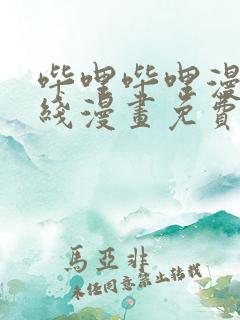 哔哩哔哩漫
线漫畫免費
馬亞非
未经同意禁止转载